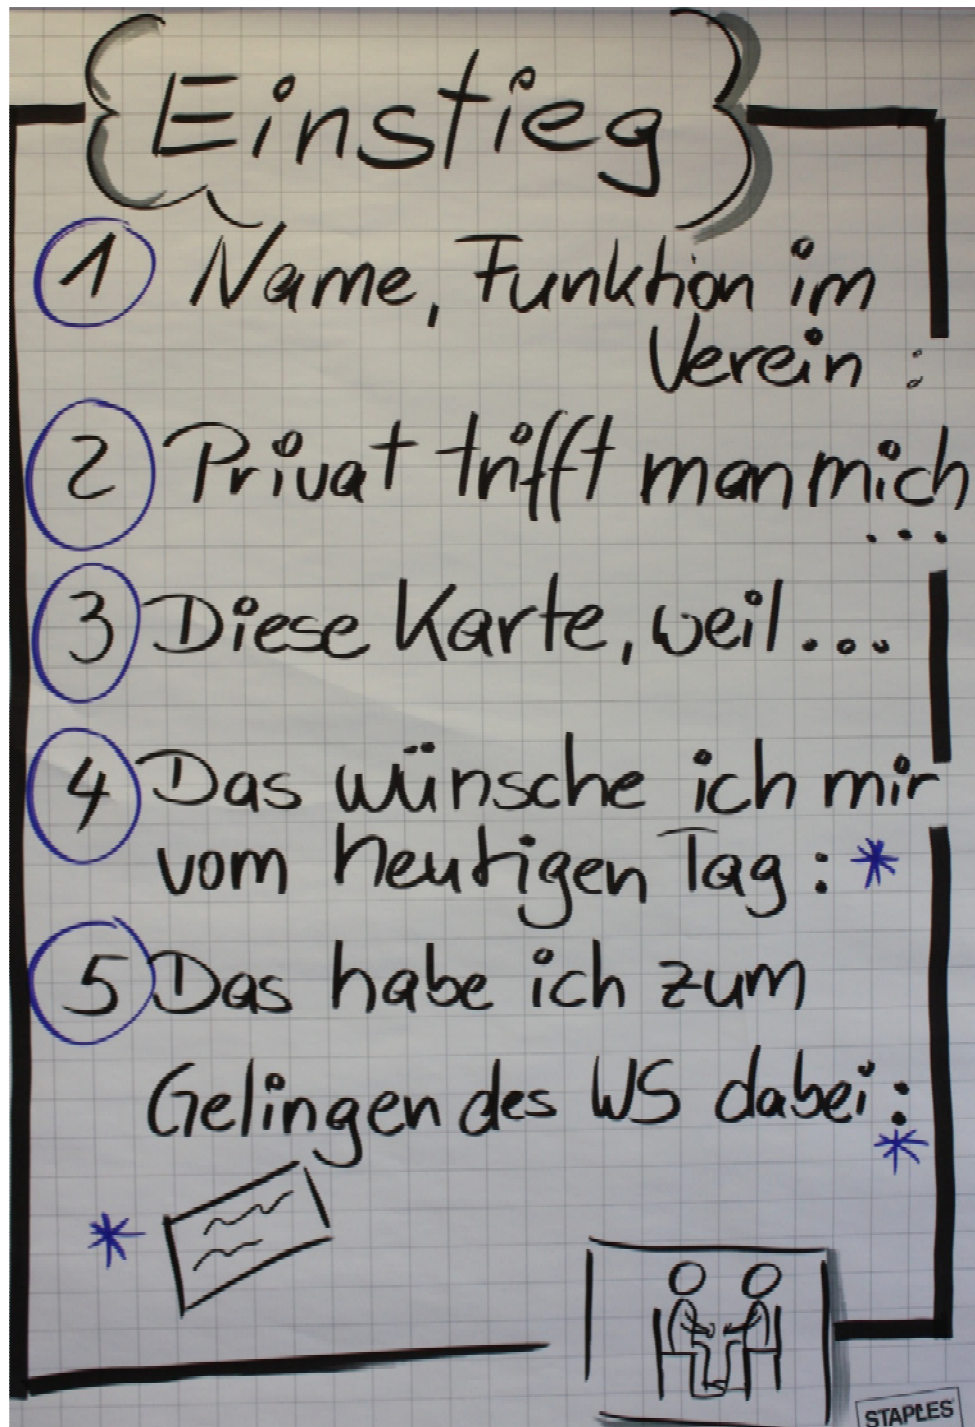 Einstieg
1 Name, Funktion im
Verein :
2 Privat trifft man mich
...
3 Diese Karte, weil ...
4 Das wünsche ich mir
vom heutigen Tag : *
5 Das habe ich zum
Gelingen des WS dabei :
*
*
STAPLES